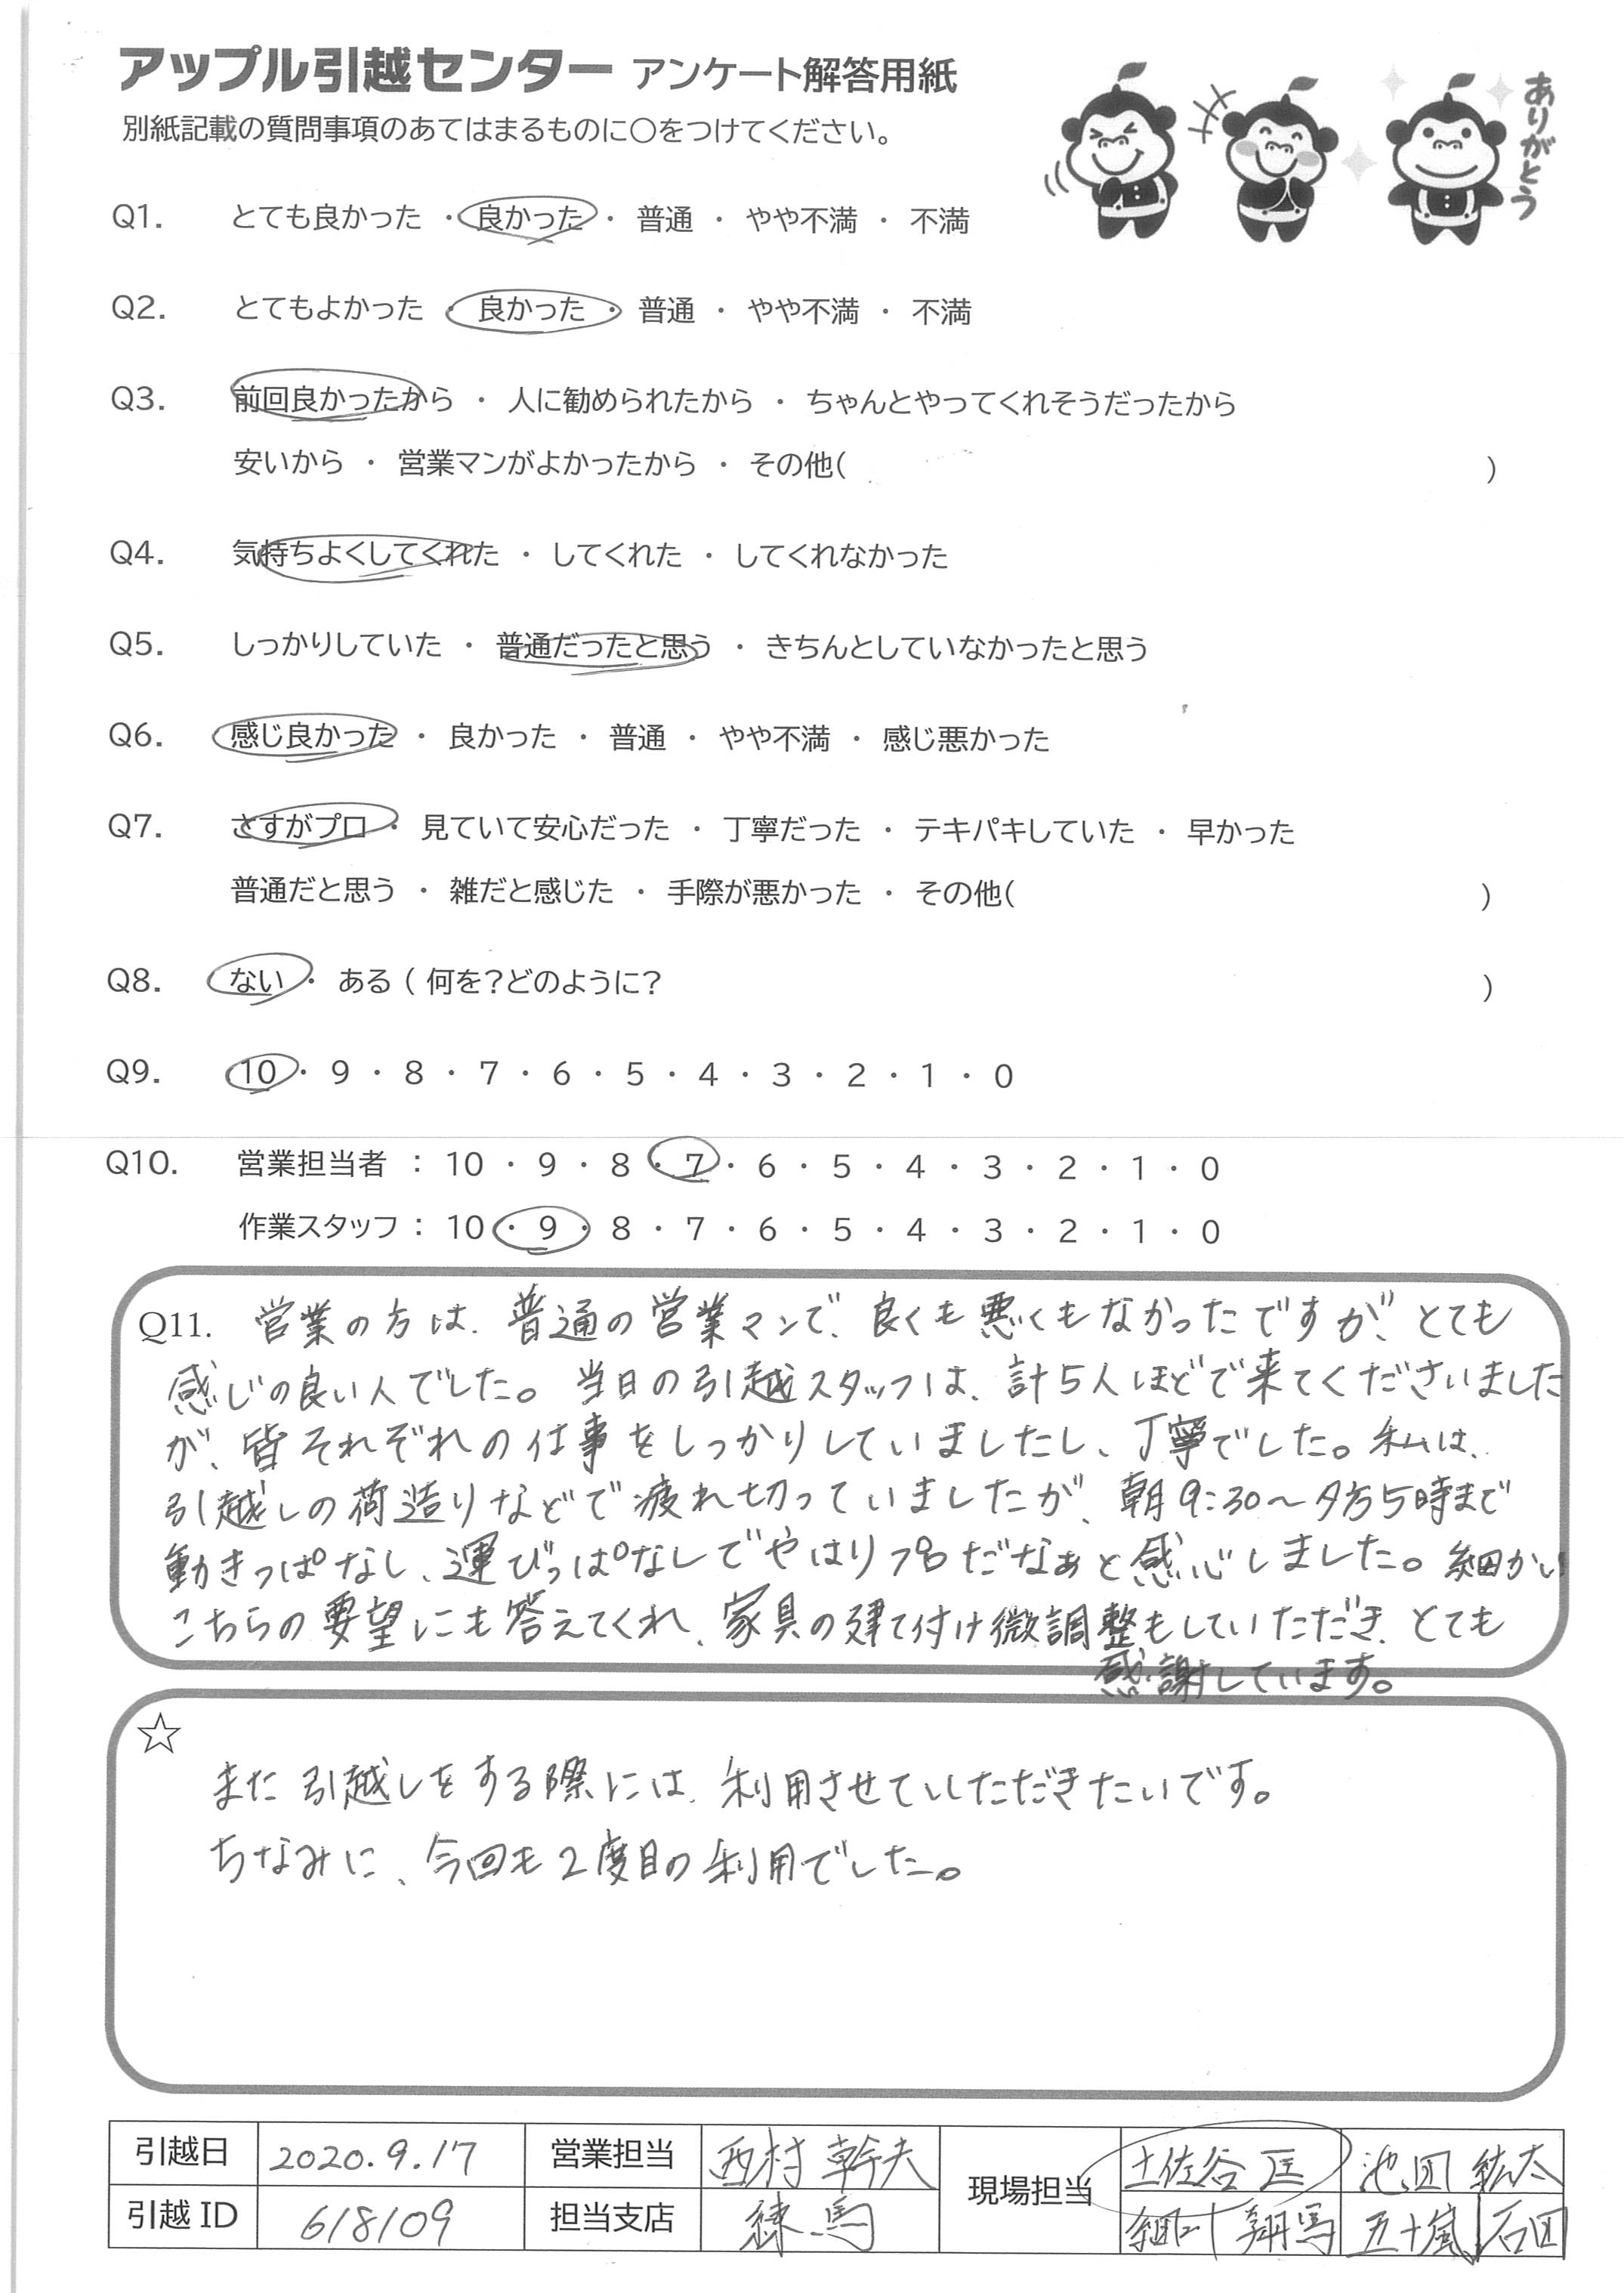 アップル引越センター アンケート解答用紙
別紙記載の質問事項のあてはまるものに○をつけてください。
ありがとう
Q1. とても良かった ・ 良かった ・ 普通 ・ やや不満 ・ 不満
Q2. とてもよかった ・ 良かった ・ 普通 ・ やや不満 ・ 不満
Q3. 前回良かったから ・ 人に勧められたから ・ ちゃんとやってくれそうだったから
安いから ・ 営業マンがよかったから ・ その他( )
Q4. 気持ちよくしてくれた ・ してくれた ・ してくれなかった
Q5. しっかりしていた ・ 普通だったと思う ・ きちんとしていなかったと思う
Q6. 感じ良かった ・ 良かった ・ 普通 ・ やや不満 ・ 感じ悪かった
Q7. さすがプロ ・ 見ていて安心だった ・ 丁寧だった ・ テキパキしていた ・ 早かった
普通だと思う ・ 雑だと感じた ・ 手際が悪かった ・ その他( )
Q8. ない ・ ある ( 何を？どのように？ )
Q9. 10 ・ 9 ・ 8 ・ 7 ・ 6 ・ 5 ・ 4 ・ 3 ・ 2 ・ 1 ・ 0
Q10. 営業担当者 : 10 ・ 9 ・ 8 ・ 7 ・ 6 ・ 5 ・ 4 ・ 3 ・ 2 ・ 1 ・ 0
作業スタッフ : 10 ・ 9 ・ 8 ・ 7 ・ 6 ・ 5 ・ 4 ・ 3 ・ 2 ・ 1 ・ 0
Q11. 営業の方は、普通の営業マンで、良くも悪くもなかったですが、とても
感じの良い人でした。当日の引越スタッフは、計5人ほどで来てくださいました
が、皆それぞれの仕事をしっかりしていましたし、丁寧でした。私は、
引越しの荷造りなどで疲れ切っていましたが、朝9:30〜夕方5時まで
動きっぱなし、運びっぱなしでやはりプロだなぁと感心しました。細かい
こちらの要望にも答えてくれ、家具の建て付け微調整もしていただき、とても
感謝しています。
☆
また引越しをする際には、利用させていただきたいです。
ちなみに、今回も2度目の利用でした。
引越日 2020.9.17 営業担当 西村 幹夫 現場担当 土佐谷 匡 池田 紘太
引越ID 618109 担当支店 練馬 翔馬 五十嵐 石田